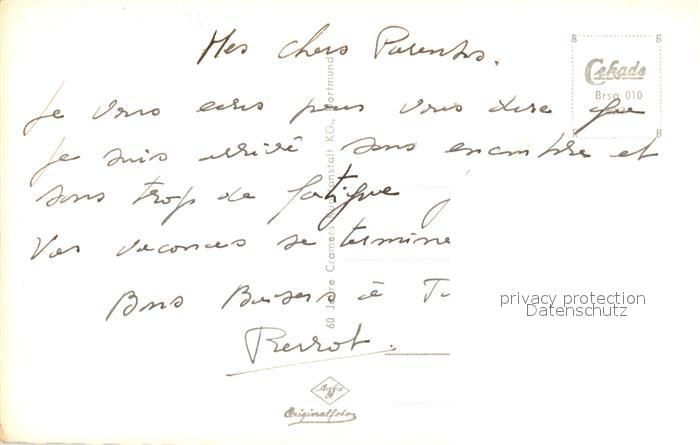 Mes chers Parents.
Je vous ecris pour vous dire que
Je suis arrivé sans encombre et
sans trop de fatigue
Vos vacances se termine
Bons Baisers à T
Pierrot.
Cekade
Brsg 010
60 Jahre Cramers Kunstanstalt KG., Dortmund
Agfa
Originalfoto
privacy protection
Datenschutz